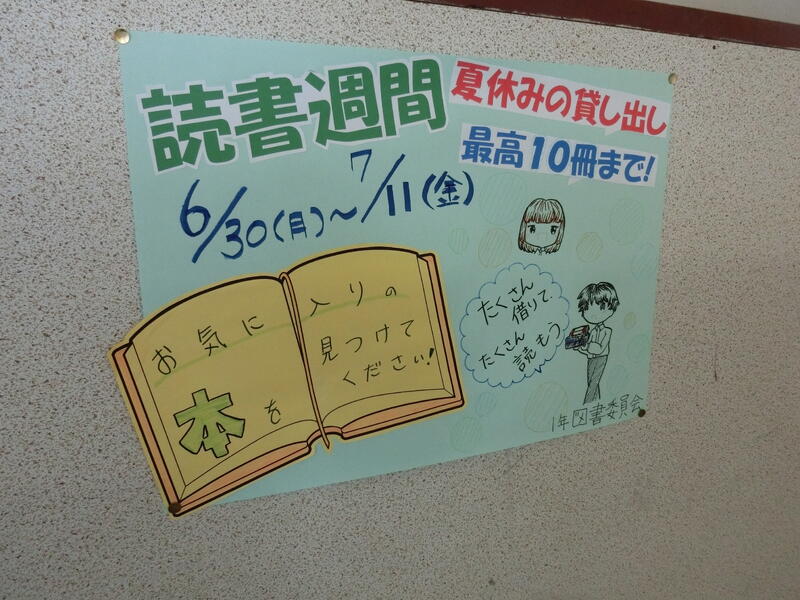 読書週間
夏休みの貸し出し
最高10冊まで!
6/30(月)~7/11(金)
お気に入りの
本を
見つけて
ください!
たくさん
借りて
たくさん
読もう
1年図書委員会